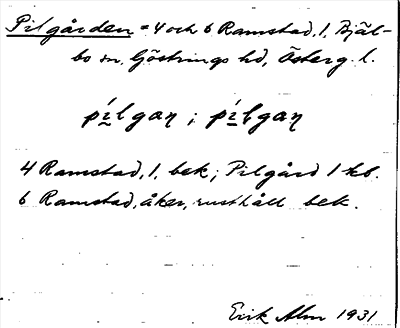 Pilgården = 4 och 6 Ramstad, 1, Bjäl-
bo sn, Göstrings hd, Österg. l.
pílgan ; pílgan
4 Ramstad, 1, bek; Pilgård 1 kb.
6 Ramstad, åker, rusthåll bek.
Erik Alm 1931